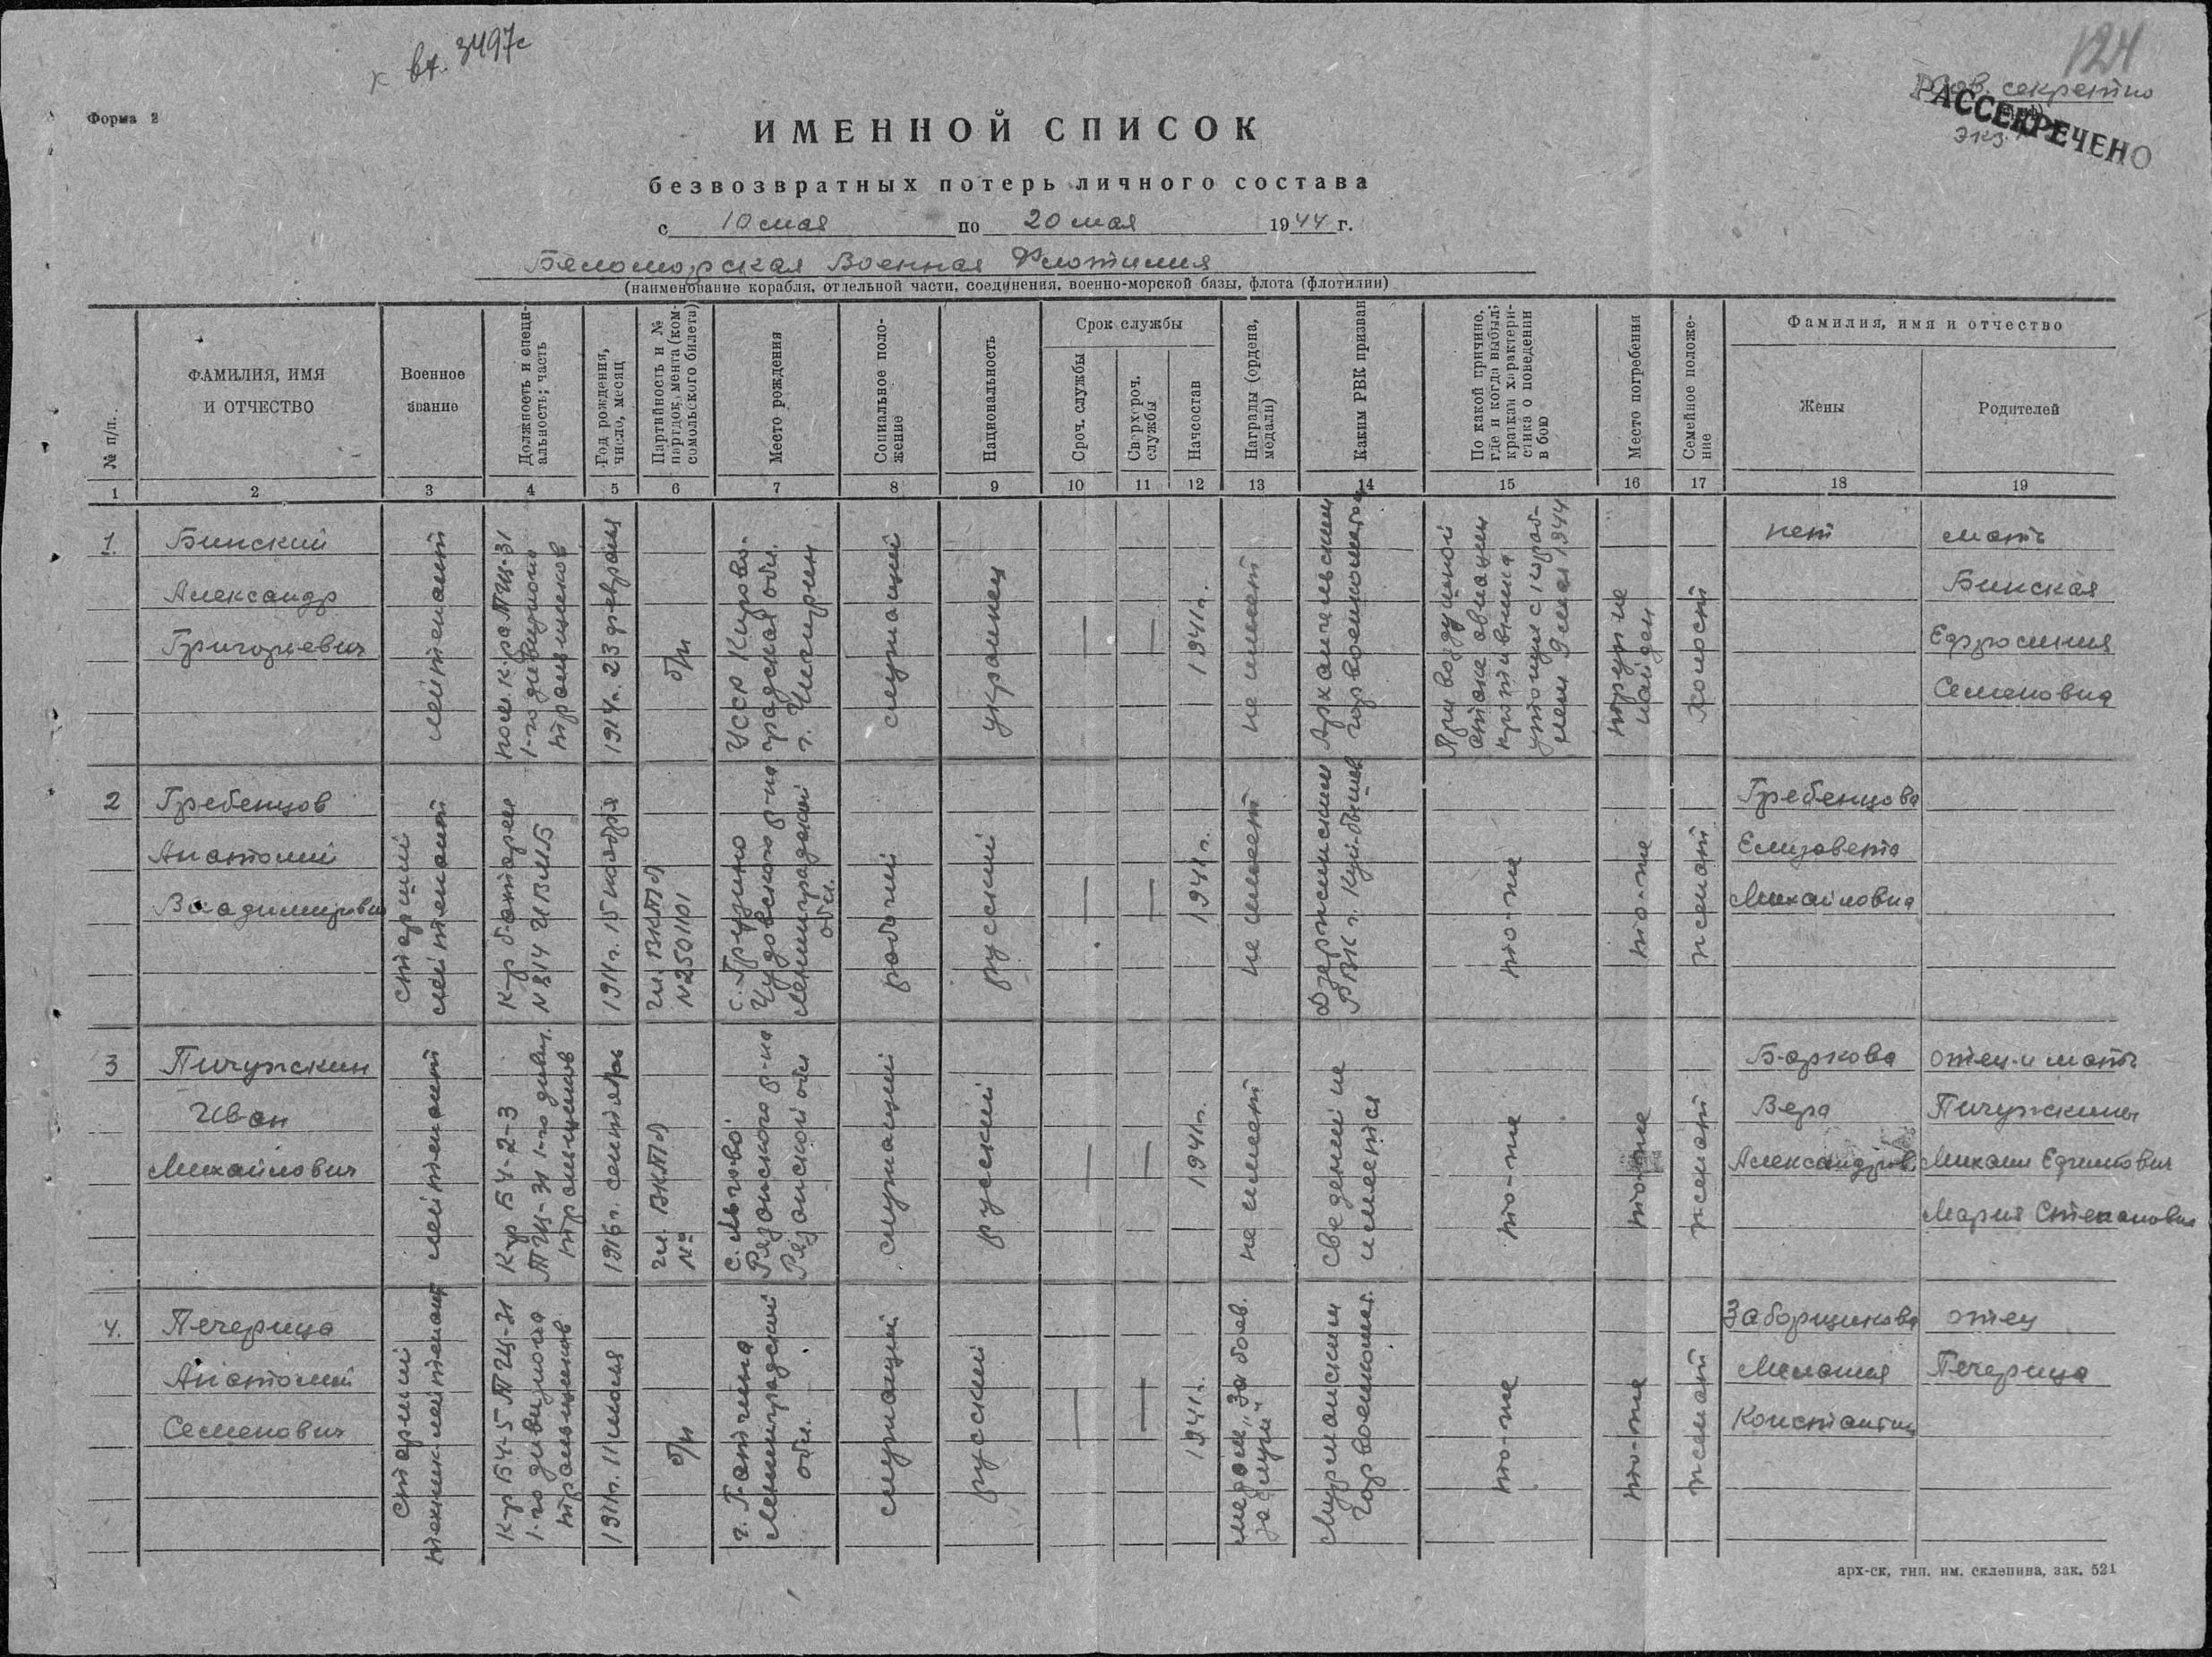 к вх. 3497с
124
Сов. секретно
РАССЕКРЕЧЕНО
экз.
Форма 2
ИМЕННОЙ СПИСОК
безвозвратных потерь личного состава
с 10 мая по 20 мая 1944 г.
Беломорская Военная Флотилия
(наименование корабля, отдельной части, соединения, военно-морской базы, флота (флотилии)
№ п/п.
ФАМИЛИЯ, ИМЯ
И ОТЧЕСТВО
Военное
звание
Должность и специ-
альность; часть
Год рождения,
число, месяц
Партийность и №
партдокумента (ком-
сомольского билета)
Место рождения
Социальное поло-
жение
Национальность
Срок службы
Сроч. службы
Сверхсроч.
службы
Начсостав
Награды (ордена,
медали)
Каким РВК призван
По какой причине,
где и когда выбыл;
краткая характери-
стика о поведении
в бою
Место погребения
Семейное положе-
ние
Фамилия, имя и отчество
Жены
Родителей
1 2 3 4 5 6 7 8 9 10 11 12 13 14 15 16 17 18 19
1
Бинский
Александр
Григорьевич
лейтенант
пом. к-ра ТЩ-31
1-го дивизиона
тральщиков
1914г. 23 февраля
б/п
УССР Кирово-
градская обл.
г. Чигирин
служащий
украинец
— —
1941г.
не имеет
Архангельским
горвоенкоматом
При воздушной
атаке авиации
противника
утонул с кораб-
лем 9 мая 1944
труп не
найден
холост
нет
мать
Бинская
Ефросиния
Семеновна
2
Гребенцов
Анатолий
Владимирович
старший
лейтенант
К-р батареи
№ 814 ИВМБ
1911г. 15 ноября
чл. ВКП(б)
№ 2501101
с. Грузино
Чудовского р-на
Ленинградской
обл.
рабочий
русский
— —
1941г.
не имеет
Дзержинским
РВК г. Куйбышев
то-же
то-же
женат
Гребенцова
Елизавета
Михайловна
3
Пичужкин
Иван
Михайлович
лейтенант
К-р БЧ-2-3
ТЩ-31 1-го дивиз.
тральщиков
1916г. сентябрь
чл. ВКП(б)
№
с. Льгово
Рязанского р-на
Рязанской обл
служащий
русский
— —
1941г.
не имеет
сведений не
имеется
то-же
то-же
женат
Баркова
Вера
Александров.
отец и мать
Пичужкины
Михаил Ефимович
Мария Степановна
4.
Печерица
Анатолий
Семенович
старший
техник-лейтенант
К-р БЧ-5 ТЩ-31
1-го дивизиона
тральщиков
1911г. 11 июля
б/п
г. Гатчина
Ленинградской
обл.
служащий
русский
— —
1941г.
медаль „За боев.
заслуги"
Мурманским
горвоенкомат.
то-же
то-же
женат
Заборщикова
Мелания
Константин
отец
Печерица
арх-ск, тип. им. склепина, зак. 521